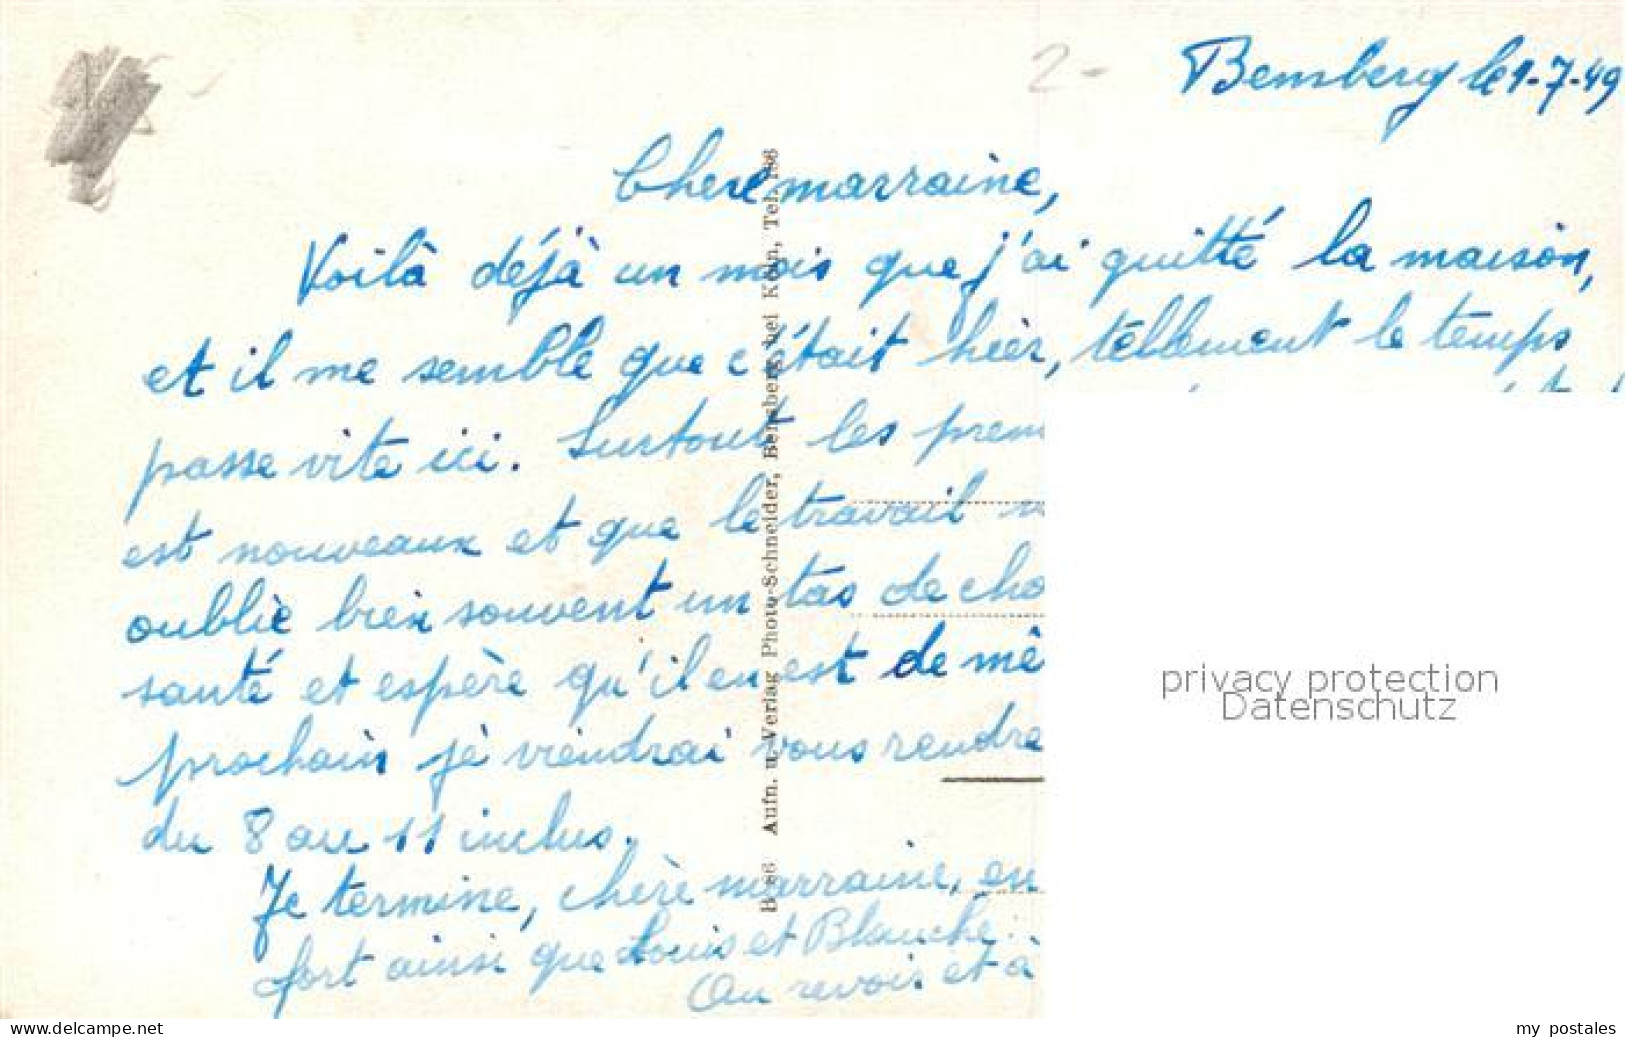 2-
Bemsberg le 1-7-49
Chère marraine,
Voilà déjà un mois que j'ai quitté la maison,
et il me semble que c'était hier, tellement le temps
passe vite ici. Surtout les prem
est nouveaux et que le travail
oublie bien souvent un tas de cho
santé et espère qu'il en est de mê
prochain je viendrai vous rendre
du 8 au 11 inclus.
Je termine, chère marraine, en
fort ainsi que Louis et Blanche.
Au revoir et à
Aufn. u. Verlag Photo-Schneider, Bensberg bei Köln, Tel.
privacy protection
Datenschutz
www.delcampe.net
my postales